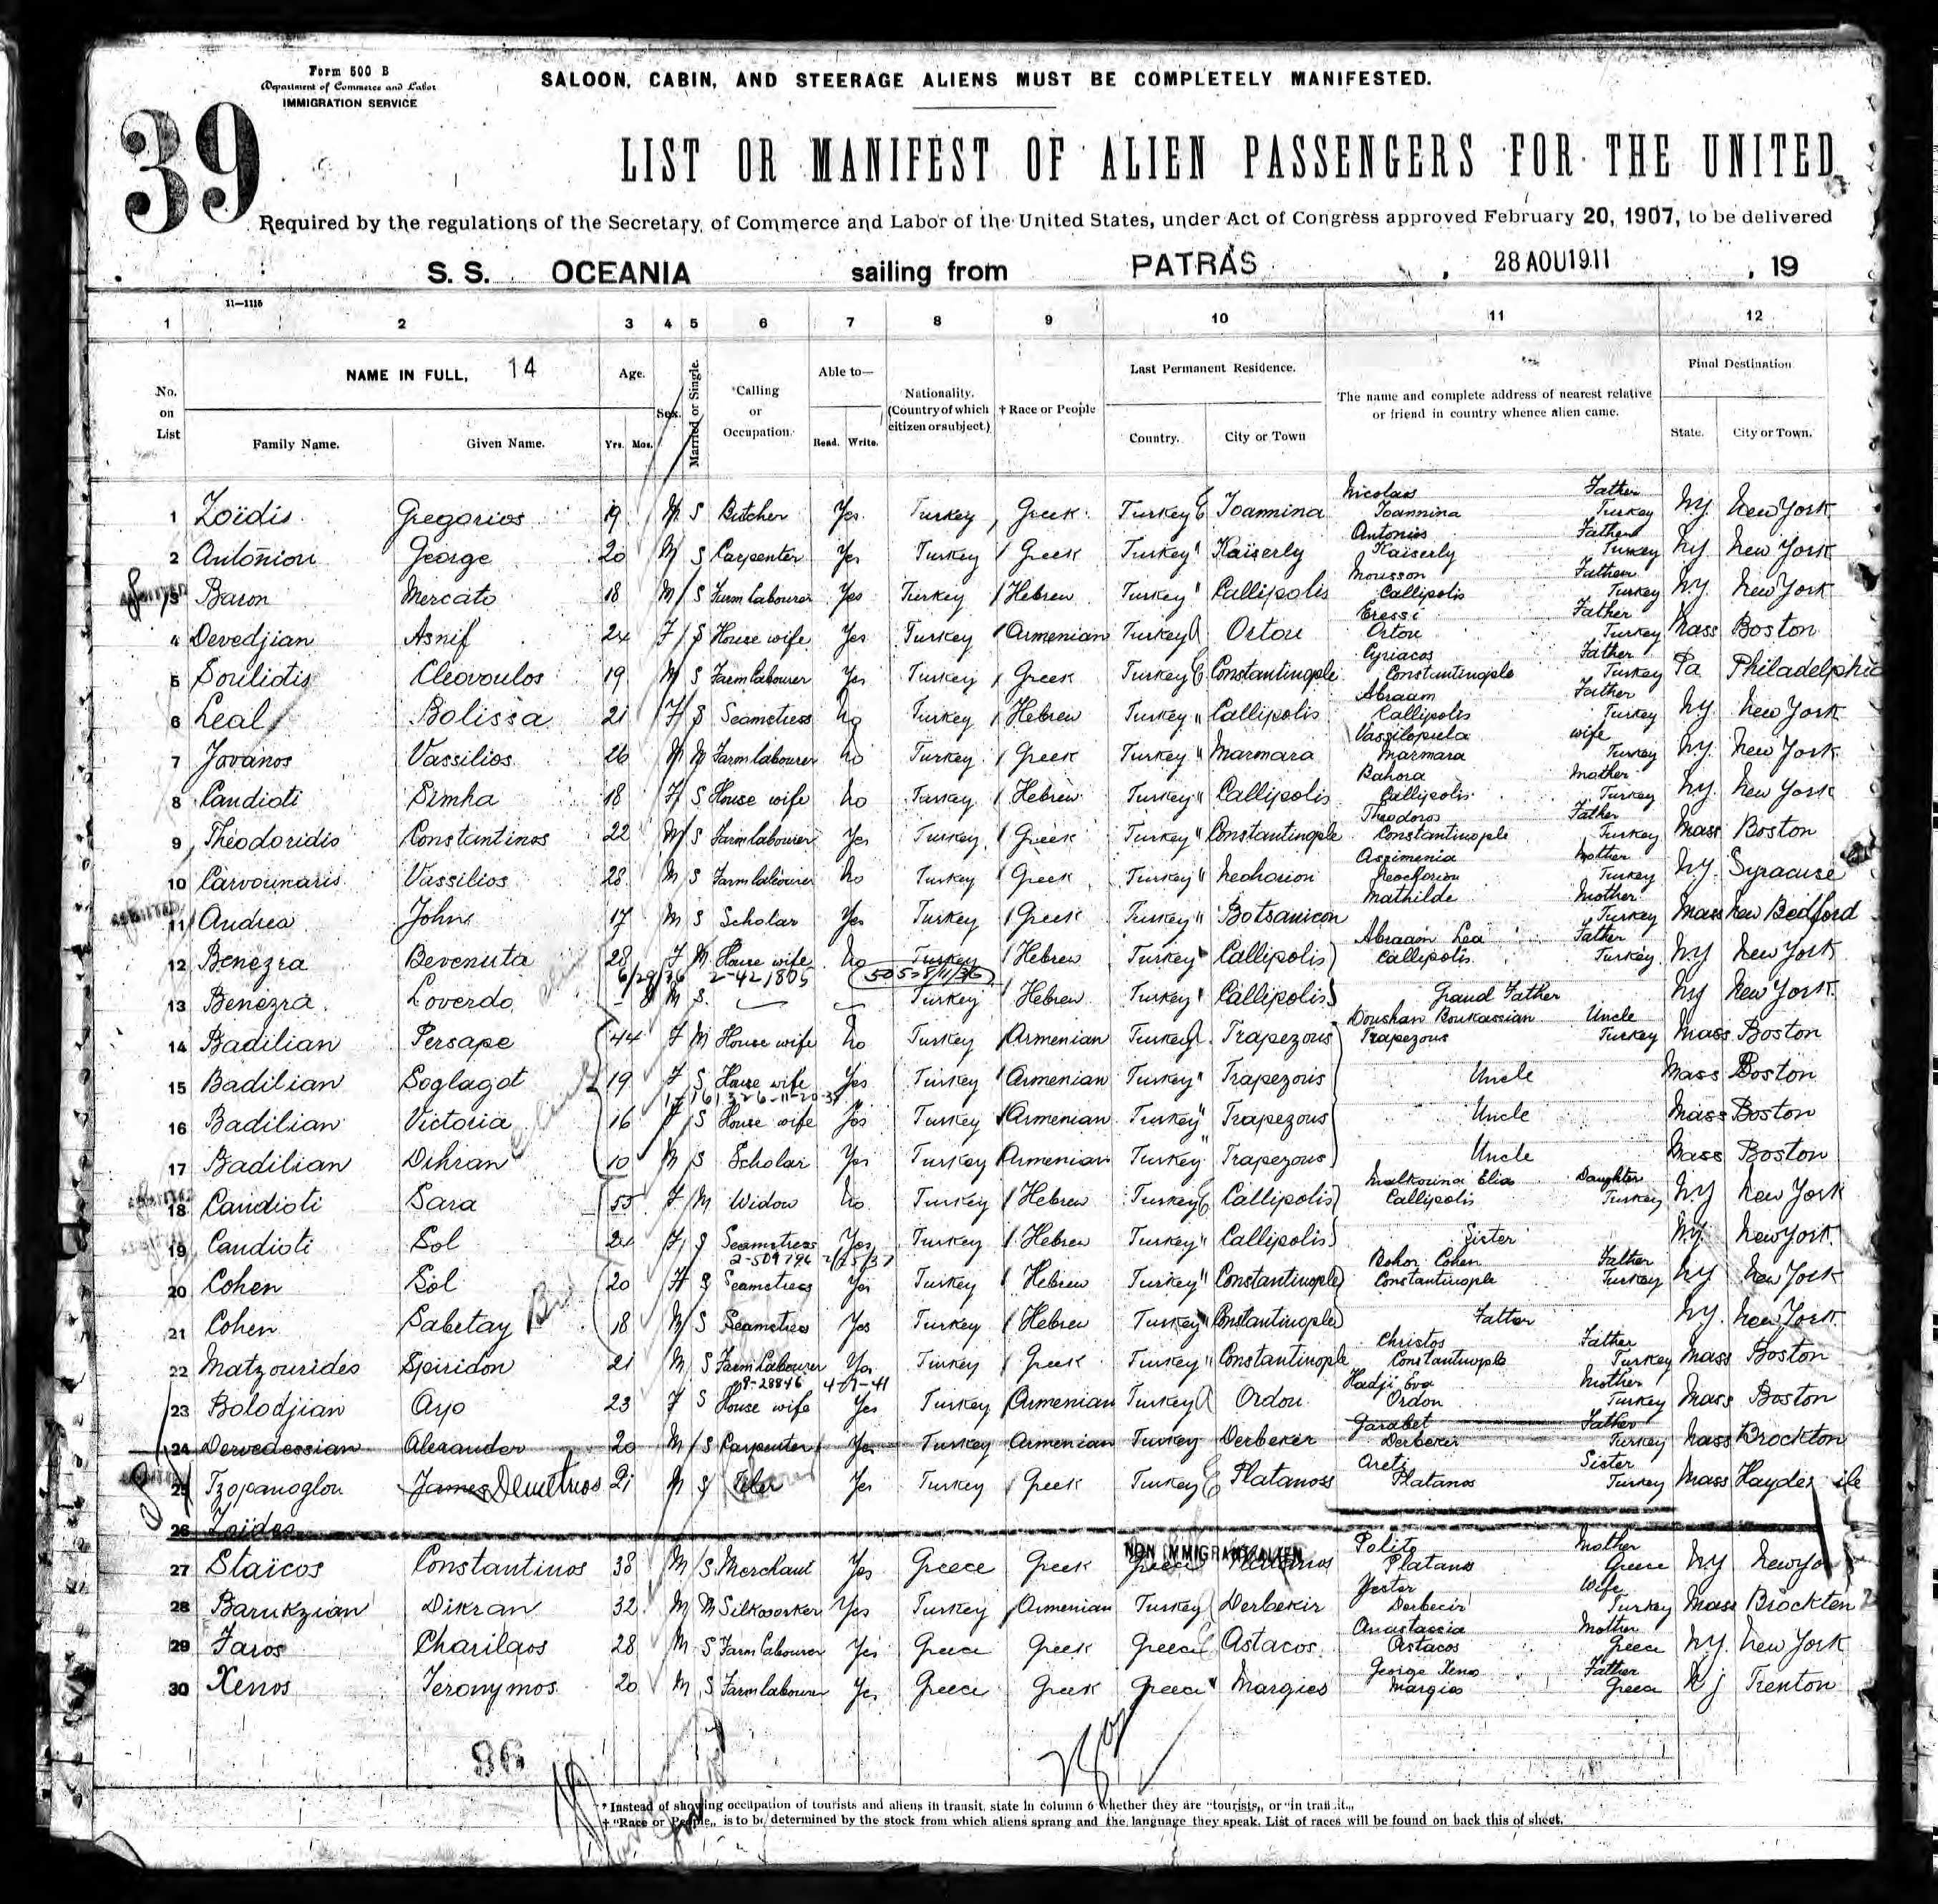 Form 500 B
Department of Commerce and Labor
IMMIGRATION SERVICE
39
SALOON, CABIN, AND STEERAGE ALIENS MUST BE COMPLETELY MANIFESTED.
LIST OR MANIFEST OF ALIEN PASSENGERS FOR THE UNITED
Required by the regulations of the Secretary of Commerce and Labor of the United States, under Act of Congress approved February 20, 1907, to be delivered
S. S. OCEANIA sailing from PATRAS , 28 AOU 1911 , 19
11—1115
1 2 3 4 5 6 7 8 9 10 11 12
No. on List NAME IN FULL, 14 Age. Sex. Married or Single. *Calling or Occupation. Able to— Nationality. (Country of which citizen or subject.) † Race or People Last Permanent Residence. The name and complete address of nearest relative or friend in country whence alien came. Final Destination
Family Name. Given Name. Yrs. Mos. Read. Write. Country. City or Town State. City or Town.
1 Zoïdis Gregorios 19 M S Butcher Yes Turkey Greek Turkey Joannina Nicolaos Father Joannina Turkey N.Y. New York
2 Antoniou George 20 M S Carpenter Yes Turkey Greek Turkey " Kaiserly Antonios Father Kaiserly Turkey N.Y. New York
3 Baron Mercato 18 M S Farm labourer Yes Turkey Hebrew Turkey " Callipolis Mousson Father Callipolis Turkey N.Y. New York
4 Devedjian Asnif 24 F S House wife Yes Turkey Armenian Turkey Ortou Eressi Father Ortou Turkey Mass Boston
5 Soulidis Cleovoulos 19 M S Farm labourer Yes Turkey Greek Turkey Constantinople Cyriacos Father Constantinople Turkey Pa Philadelphia
6 Leal Bolissa 21 F S Seamstress No Turkey Hebrew Turkey " Callipolis Abraam Father Callipolis Turkey N.Y. New York
7 Jovanos Vassilios 26 M M Farm labourer No Turkey Greek Turkey " Marmara Vassilopula wife Marmara Turkey N.Y. New York
8 Candioti Simha 18 F S House wife No Turkey Hebrew Turkey " Callipolis Bahora Mother Callipolis Turkey N.Y. New York
9 Theodoridis Constantinos 22 M S Farm labourer Yes Turkey Greek Turkey " Constantinople Theodoros Father Constantinople Turkey Mass Boston
10 Carvounaris Vassilios 28 M S Farm labourer No Turkey Greek Turkey " Neohorion Assimenia Mother Neochorion Turkey N.Y. Syracuse
11 Andrea John 17 M S Scholar Yes Turkey Greek Turkey " Botsanicon Mathilde Mother Turkey Mass New Bedford
12 Benezra Bevenuta 28 F M House wife No Turkey Hebrew Turkey " Callipolis Abraam Lea Father Callipolis Turkey N.Y. New York
6/29/36 2-421805 505-8/11/36
13 Benezra Loverdo 8 M S — — Turkey Hebrew Turkey " Callipolis Grand Father N.Y. New York
14 Badilian Persape 44 F M House wife No Turkey Armenian Turkey Trapezous Doushan Boukassian Uncle Trapezous Turkey Mass Boston
15 Badilian Soglagot 19 F S House wife Yes Turkey Armenian Turkey " Trapezous Uncle Mass Boston
16 Badilian Victoria 16 F S House wife Yes Turkey Armenian Turkey " Trapezous Uncle Mass Boston
17 Badilian Dikran 10 M S Scholar Yes Turkey Armenian Turkey " Trapezous Uncle Mass Boston
18 Candioti Sara 55 F M Widow No Turkey Hebrew Turkey Callipolis Malkouna Elia Daughter Callipolis Turkey N.Y. New York
19 Candioti Sol 24 F S Seamstress Yes Turkey Hebrew Turkey " Callipolis Sister N.Y. New York
2-509796 2/25/37
20 Cohen Sol 20 F S Seamstress Yes Turkey Hebrew Turkey " Constantinople Bohor Cohen Father Constantinople Turkey N.Y. New York
21 Cohen Sabetay 18 M S Seamstress Yes Turkey Hebrew Turkey " Constantinople Father N.Y. New York
22 Matzourides Spiridon 21 M S Farm Labourer Yes Turkey Greek Turkey " Constantinople Christos Father Constantinople Turkey Mass Boston
9-28846 4-9-41
23 Bolodjian Ayo 23 F S House wife Yes Turkey Armenian Turkey Ordou Hadji Eva Mother Ordou Turkey Mass Boston
24 Dervedessian Alexander 20 M S Carpenter Yes Turkey Armenian Turkey Derbekir Garabet Father Derbekir Turkey Mass Brockton
25 Tzopanoglou James Demetrios 21 M S Yes Turkey Greek Turkey Platanoss Areti Sister Platanos Turkey Mass
26 Zoides
NON IMMIGRANT ALIEN
27 Staicos Constantinos 38 M S Merchant Yes Greece Greek Greece Platanos Polito Mother Platanos Greece N.Y. New York
28 Barukzian Dikran 32 M M Silkworker Yes Turkey Armenian Turkey Derbekir Yester Wife Derbecir Turkey Mass Brockton
29 Faros Charilaos 28 M S Farm labourer Yes Greece Greek Greece Astacos Anastassia Mother Astacos Greece N.Y. New York
30 Xenos Jeronymos 20 M S Farm labourer Yes Greece Greek Greece " Margies George Xenos Father Margies Greece N.J Trenton
96
* Instead of showing occupation of tourists and aliens in transit, state in column 6 whether they are "tourists„ or "in transit.„
† "Race or People„ is to be determined by the stock from which aliens sprang and the language they speak. List of races will be found on back this of sheet.